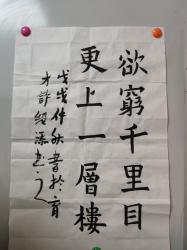 欲窮千里目
更上一層樓
戊戌仲秋書於育
才許